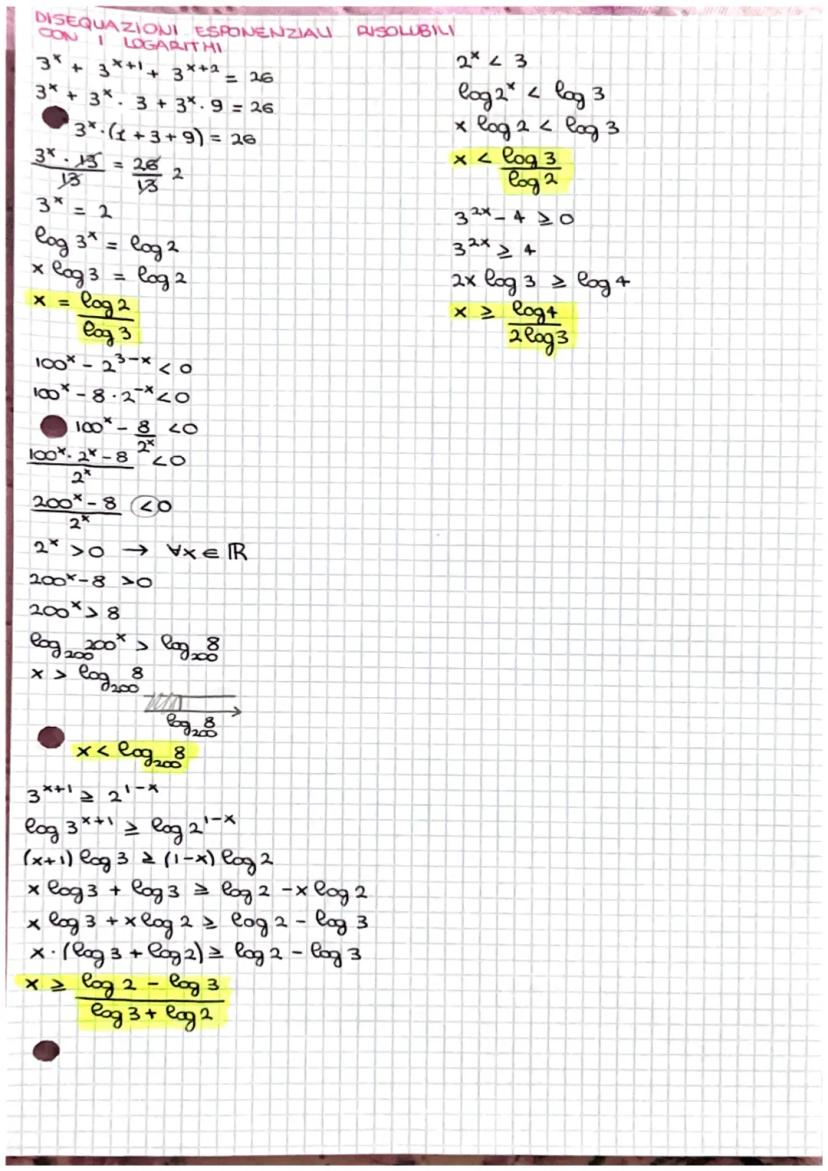 DISEQUAZIONI ESPONENZIALI RISOLUBILI
CON I LOGARITMI
3ˣ + 3ˣ⁺¹ + 3ˣ⁺² = 26
3ˣ + 3ˣ · 3 + 3ˣ · 9 = 26
3ˣ · (1 + 3 + 9) = 26
3ˣ · 13 / 13 = 26 / 13 2
3ˣ = 2
log 3ˣ = log 2
x log 3 = log 2
x = log 2 / log 3
100ˣ - 2³⁻ˣ < 0
100ˣ - 8 · 2⁻ˣ < 0
100ˣ - 8 / 2ˣ < 0
100ˣ · 2ˣ - 8 / 2ˣ < 0
200ˣ - 8 / 2ˣ < 0
2ˣ > 0 → ∀x ∈ ℝ
200ˣ - 8 > 0
200ˣ > 8
log₂₀₀ 200ˣ > log₂₀₀ 8
x > log₂₀₀ 8
log₂₀₀ 8
x < log₂₀₀ 8
3ˣ⁺¹ ≥ 2¹⁻ˣ
log 3ˣ⁺¹ ≥ log 2¹⁻ˣ
(x+1) log 3 ≥ (1-x) log 2
x log 3 + log 3 ≥ log 2 - x log 2
x log 3 + x log 2 ≥ log 2 - log 3
x · (log 3 + log 2) ≥ log 2 - log 3
x ≥ log 2 - log 3 / log 3 + log 2
2ˣ < 3
log 2ˣ < log 3
x log 2 < log 3
x < log 3 / log 2
3²ˣ - 4 ≥ 0
3²ˣ ≥ 4
2x log 3 ≥ log 4
x ≥ log 4 / 2 log 3